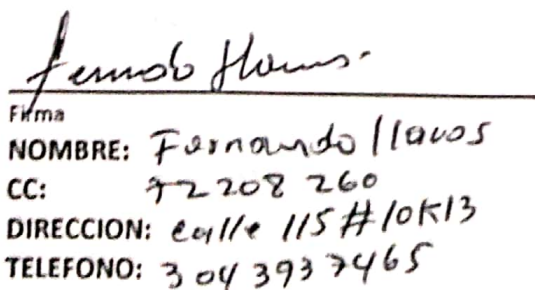 Firma
NOMBRE: Fernando llanos
CC: 72208 260
DIRECCION: calle 115 #10K13
TELEFONO: 304 393 7465